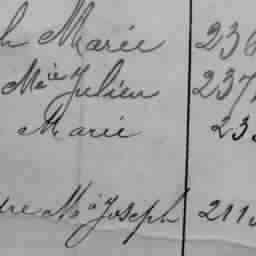 h Marie 236
Mie Julien 237
Marie 23
dre Ma Joseph 211